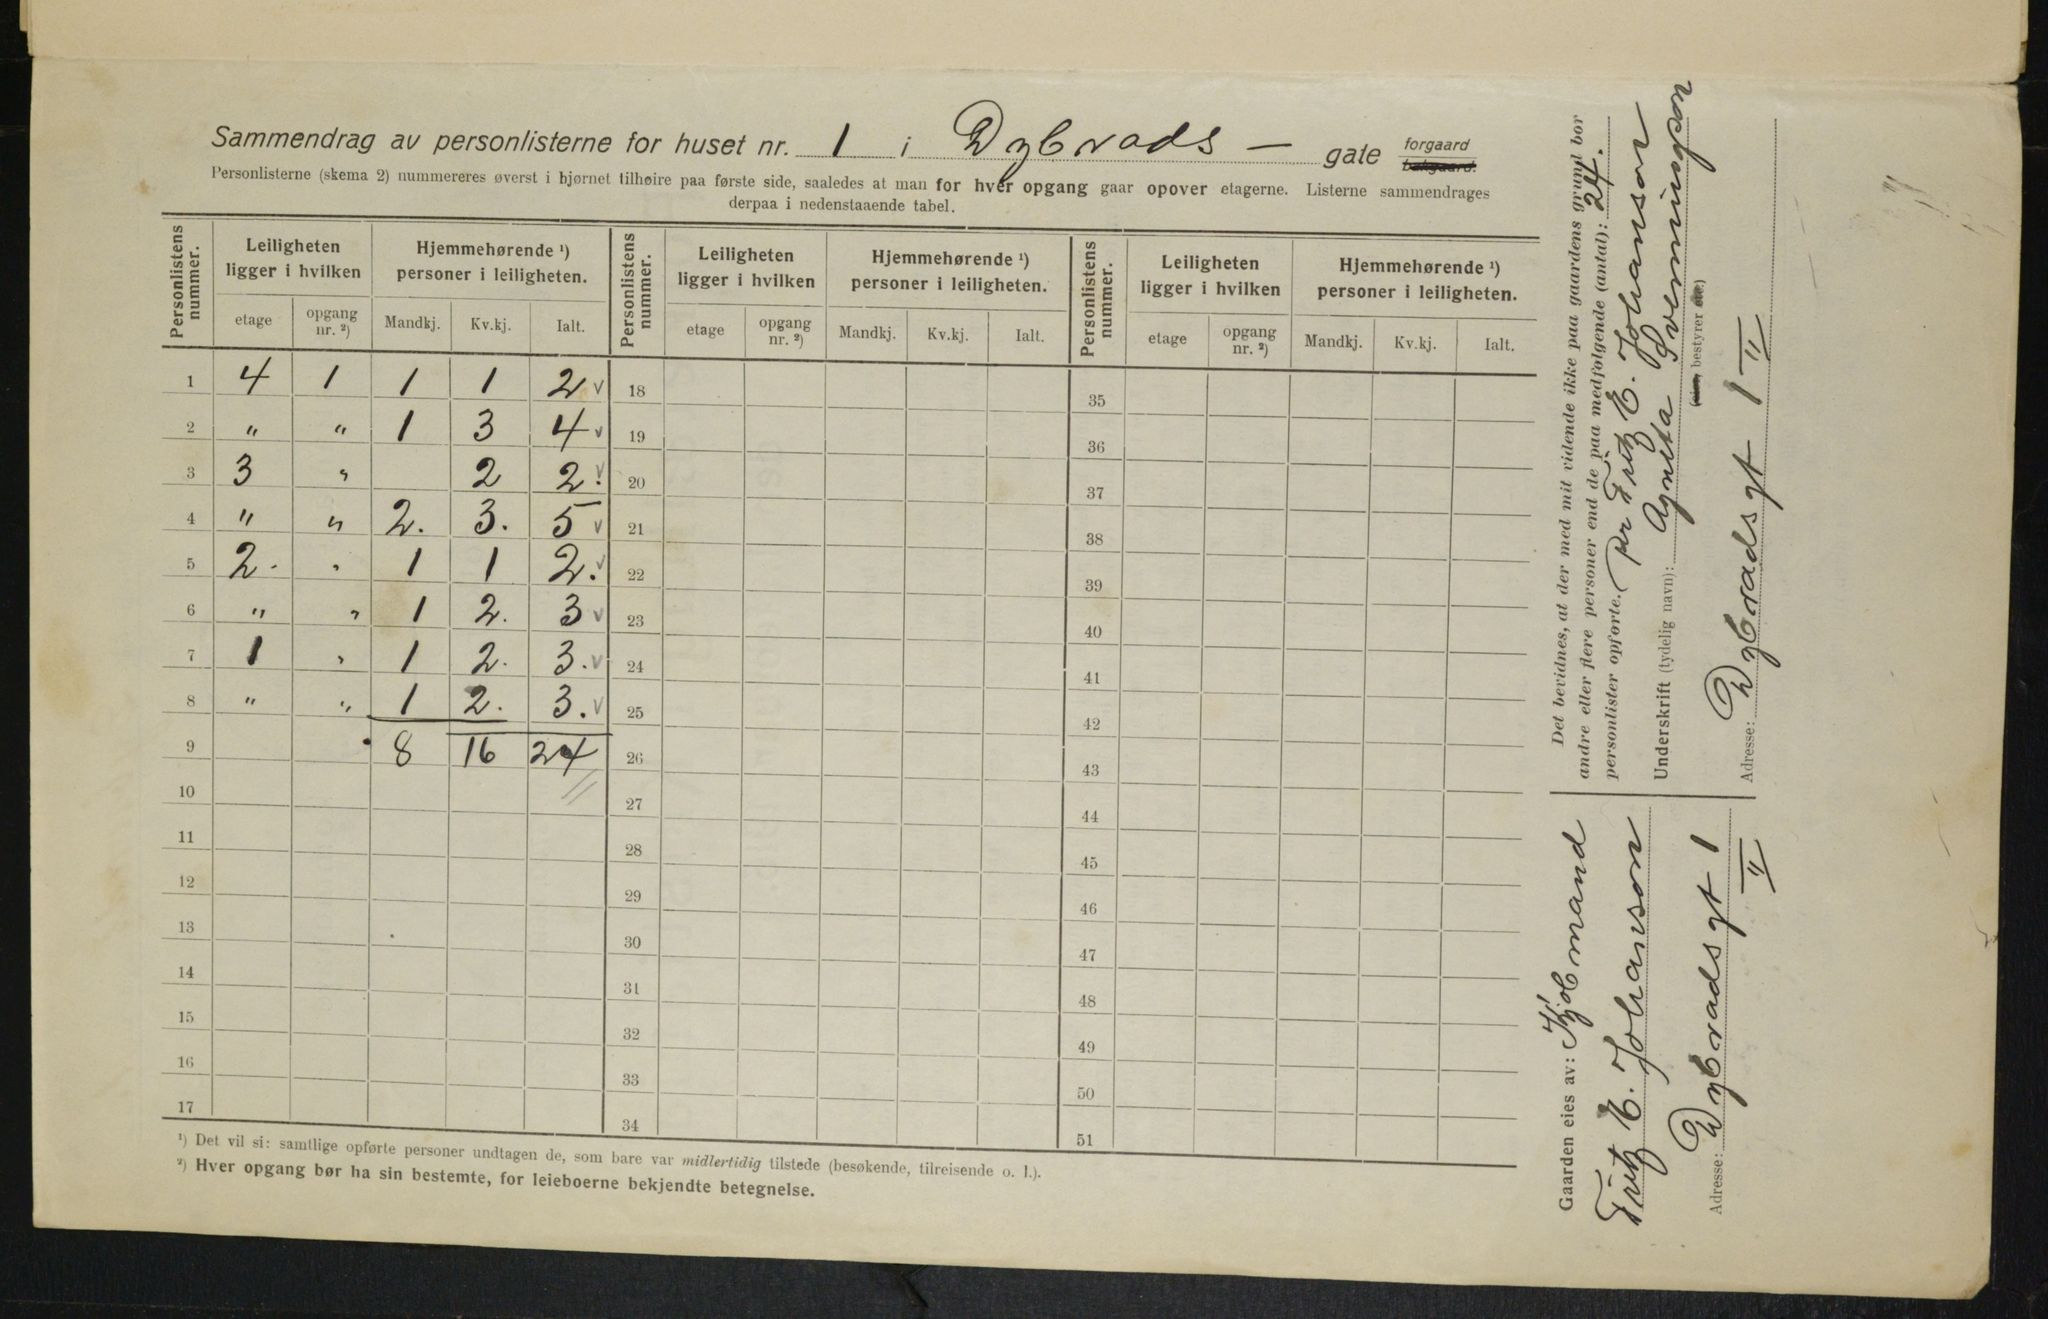 Sammendrag av personlisterne for huset nr. 1 i Dybvads – gate forgaard bakgaard.
Personlisterne (skema 2) nummereres øverst i hjørnet tilhøire paa første side, saaledes at man for hver opgang gaar opover etagerne. Listerne sammendrages
derpaa i nedenstaaende tabel.
Personlistens nummer. Leiligheten ligger i hvilken Hjemmehørende ¹) personer i leiligheten. Personlistens nummer. Leiligheten ligger i hvilken Hjemmehørende ¹) personer i leiligheten. Personlistens nummer. Leiligheten ligger i hvilken Hjemmehørende ¹) personer i leiligheten.
etage opgang nr. ²) Mandkj. Kv.kj. Ialt. etage opgang nr. ²) Mandkj. Kv.kj. Ialt. etage opgang nr. ²) Mandkj. Kv.kj. Ialt.
1 4 1 1 1 2 v 18 35
2 " " 1 3 4 v 19 36
3 3 " 2 2. v 20 37
4 " " 2. 3. 5 v 21 38
5 2. " 1 1 2. v 22 39
6 " " 1 2. 3 v 23 40
7 1 " 1 2. 3. v 24 41
8 " " 1 2. 3. v 25 42
9 8 16 24 26 43
10 27 44
11 28 45
12 29 46
13 30 47
14 31 48
15 32 49
16 33 50
17 34 51
¹) Det vil si: samtlige opførte personer undtagen de, som bare var midlertidig tilstede (besøkende, tilreisende o. l.).
²) Hver opgang bør ha sin bestemte, for leieboerne bekjendte betegnelse.
Det bevidnes, at der med mit vidende ikke paa gaardens grund bor
andre eller flere personer end de paa medfølgende (antal): 24.
personlister opførte. pr Fritz E. Johanson
Underskrift (tydelig navn): Agneta Svenningson
(eier, bestyrer etc.)
Adresse: Dybvadsgt 1 II
Gaarden eies av: Kjøbmand
Fritz E. Johanson
Adresse: Dybvadsgt 1 II